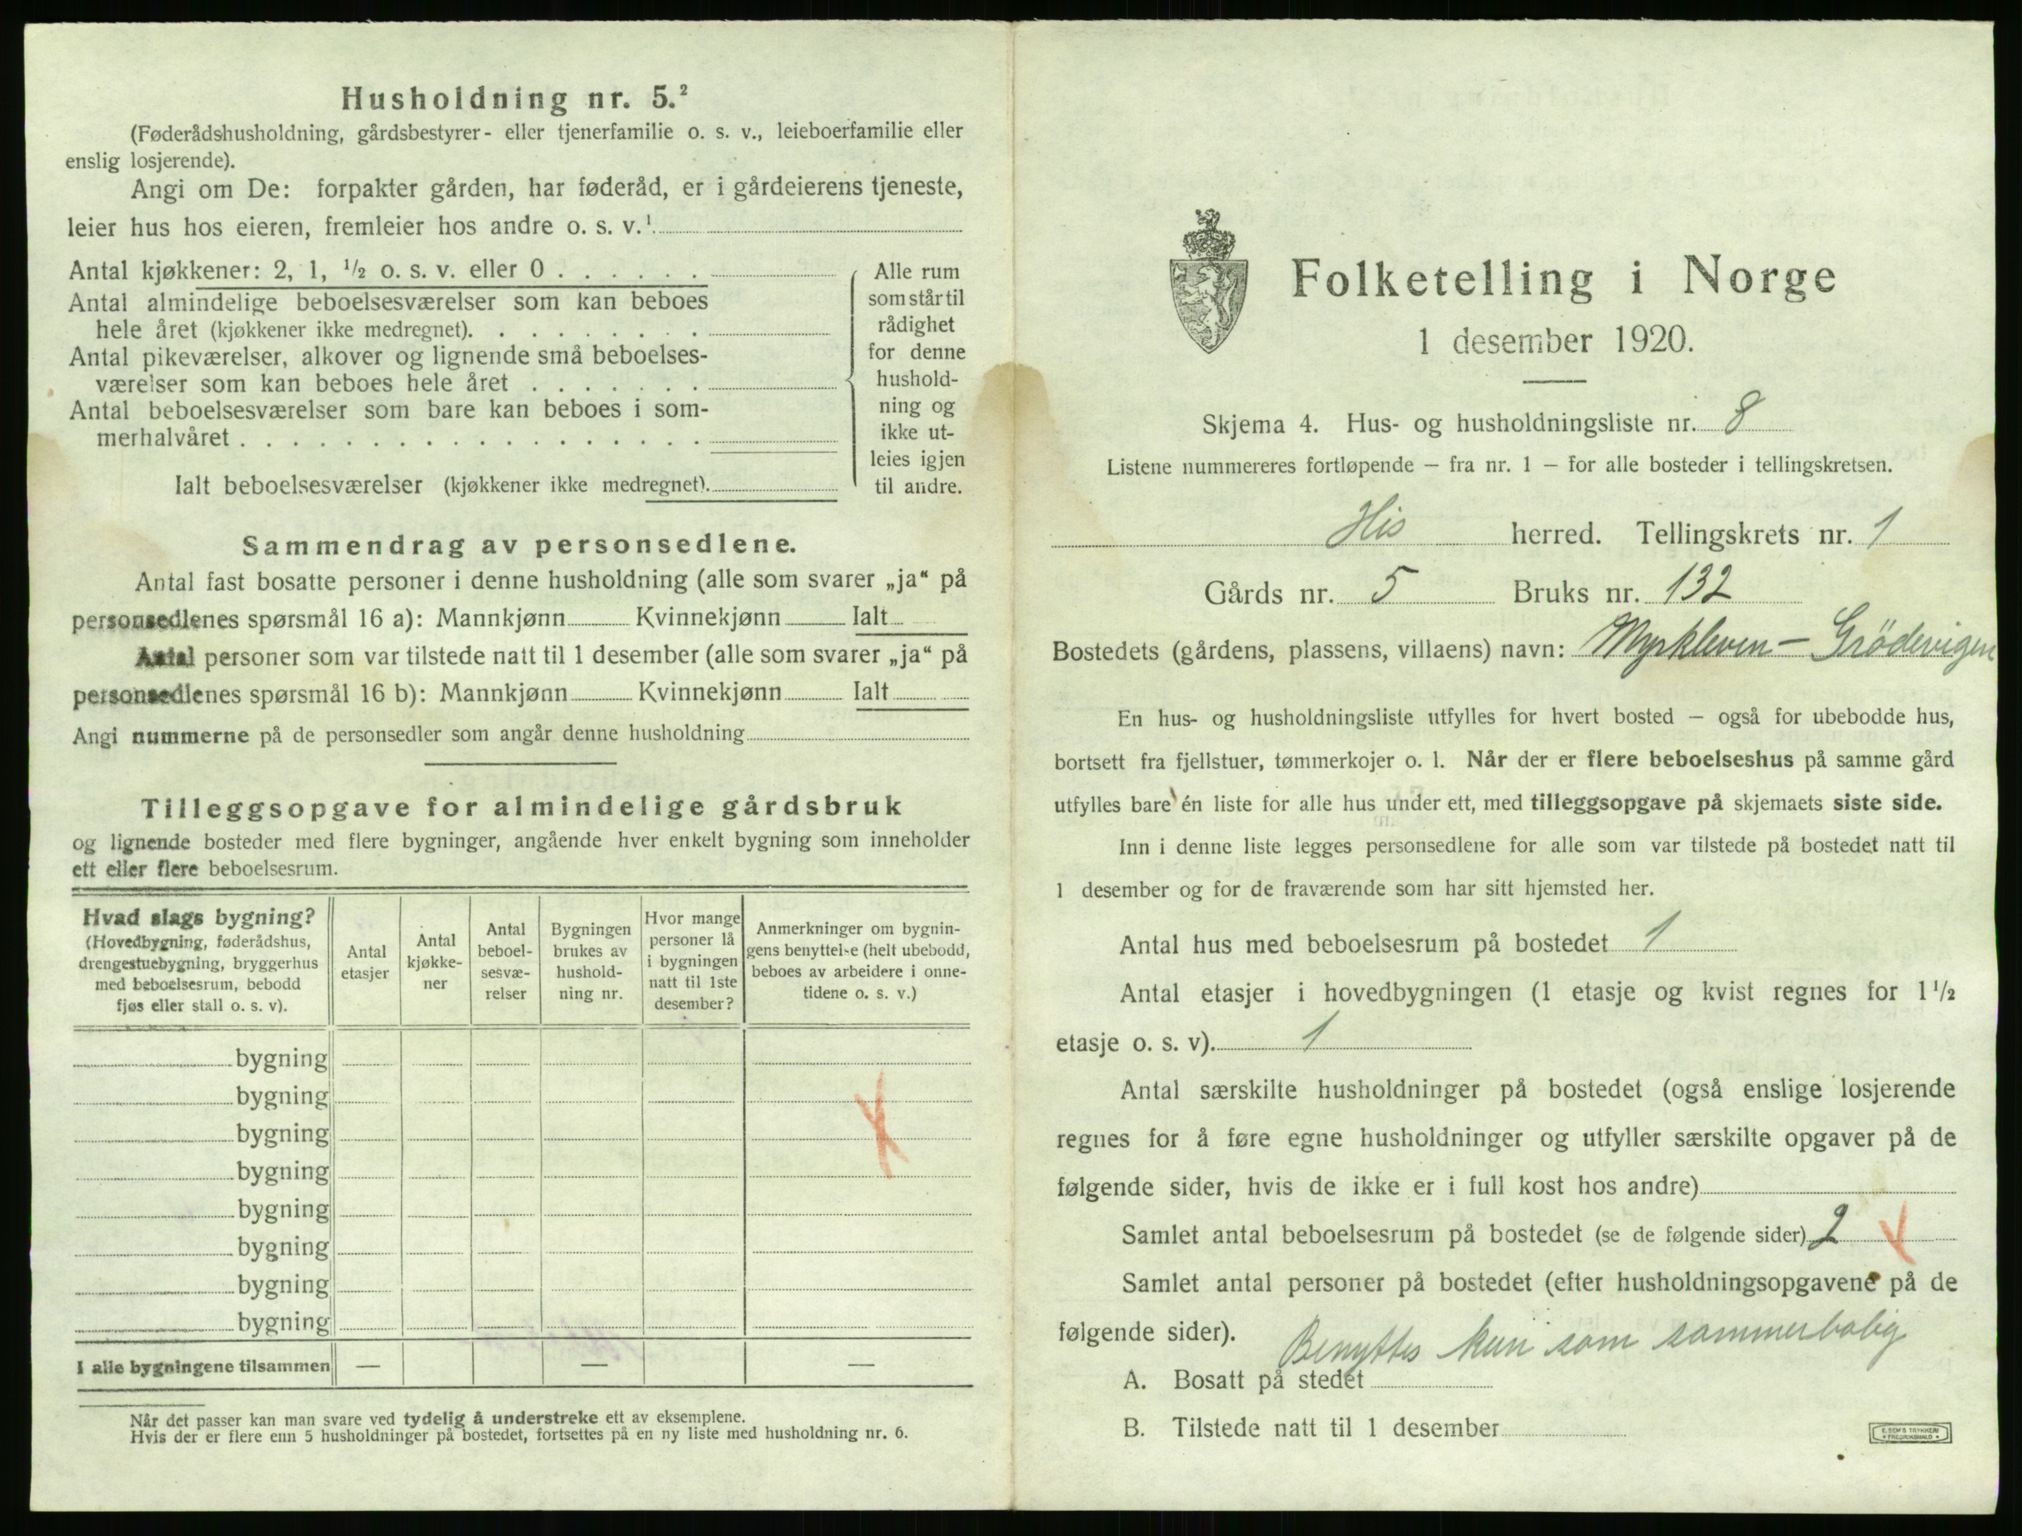 Husholdning nr. 5.²
(Føderådshusholdning, gårdsbestyrer- eller tjenerfamilie o. s. v., leieboerfamilie eller
enslig losjerende).
Angi om De: forpakter gården, har føderåd, er i gårdeierens tjeneste,
leier hus hos eieren, fremleier hos andre o. s. v.¹
Antal kjøkkener: 2, 1, ½ o. s. v. eller 0 . . . . . .
Antal almindelige beboelsesværelser som kan beboes
hele året (kjøkkener ikke medregnet). . . . . . . . .
Antal pikeværelser, alkover og lignende små beboelses-
værelser som kan beboes hele året . . . . . . .
Antal beboelsesværelser som bare kan beboes i som-
merhalvåret . . . . . . . . . . . . . . . . . .
Ialt beboelsesværelser (kjøkkener ikke medregnet).
Alle rum
som står til
rådighet
for denne
hushold-
ning og
ikke ut-
leies igjen
til andre.
Sammendrag av personsedlene.
Antal fast bosatte personer i denne husholdning (alle som svarer „ja“ på
personsedlenes spørsmål 16 a): Mannkjønn Kvinnekjønn Ialt
Antal personer som var tilstede natt til 1 desember (alle som svarer „ja“ på
personsedlenes spørsmål 16 b): Mannkjønn Kvinnekjønn Ialt
Angi nummerne på de personsedler som angår denne husholdning
Tilleggsopgave for almindelige gårdsbruk
og lignende bosteder med flere bygninger, angående hver enkelt bygning som inneholder
ett eller flere beboelsesrum.
Hvad slags bygning?
(Hovedbygning, føderådshus,
drengestuebygning, bryggerhus
med beboelsesrum, bebodd
fjøs eller stall o. s. v).
Antal
etasjer
Antal
kjøkke-
ner
Antal
beboel-
sesvæ-
relser
Bygningen
brukes av
hushold-
ning nr.
Hvor mange
personer lå
i bygningen
natt til 1ste
desember?
Anmerkninger om bygnin-
gens benyttelse (helt ubebodd,
beboes av arbeidere i onne-
tidene o. s. v.)
bygning
bygning
bygning
bygning
bygning
bygning
bygning
bygning
I alle bygningene tilsammen — — —
Når det passer kan man svare ved tydelig å understreke ett av eksemplene.
Hvis der er flere enn 5 husholdninger på bostedet, fortsettes på en ny liste med husholdning nr. 6.
Folketelling i Norge
1 desember 1920.
Skjema 4. Hus- og husholdningsliste nr. 8
Listene nummereres fortløpende — fra nr. 1 — for alle bosteder i tellingskretsen.
His herred. Tellingskrets nr. 1
Gårds nr. 5 Bruks nr. 132
Bostedets (gårdens, plassens, villaens) navn: Myrkleven — Grödevigen
En hus- og husholdningsliste utfylles for hvert bosted — også for ubebodde hus,
bortsett fra fjellstuer, tømmerkojer o. l. Når der er flere beboelseshus på samme gård
utfylles bare én liste for alle hus under ett, med tilleggsopgave på skjemaets siste side.
Inn i denne liste legges personsedlene for alle som var tilstede på bostedet natt til
1 desember og for de fraværende som har sitt hjemsted her.
Antal hus med beboelsesrum på bostedet 1
Antal etasjer i hovedbygningen (1 etasje og kvist regnes for 1½
etasje o. s. v). 1
Antal særskilte husholdninger på bostedet (også enslige losjerende
regnes for å føre egne husholdninger og utfyller særskilte opgaver på de
følgende sider, hvis de ikke er i full kost hos andre)
Samlet antal beboelsesrum på bostedet (se de følgende sider) 2
Samlet antal personer på bostedet (efter husholdningsopgavene på de
følgende sider).
Benyttes kun som sommerbolig
A. Bosatt på stedet
B. Tilstede natt til 1 desember
E. SEM'S TRYKKERI
FREDRIKSHALD